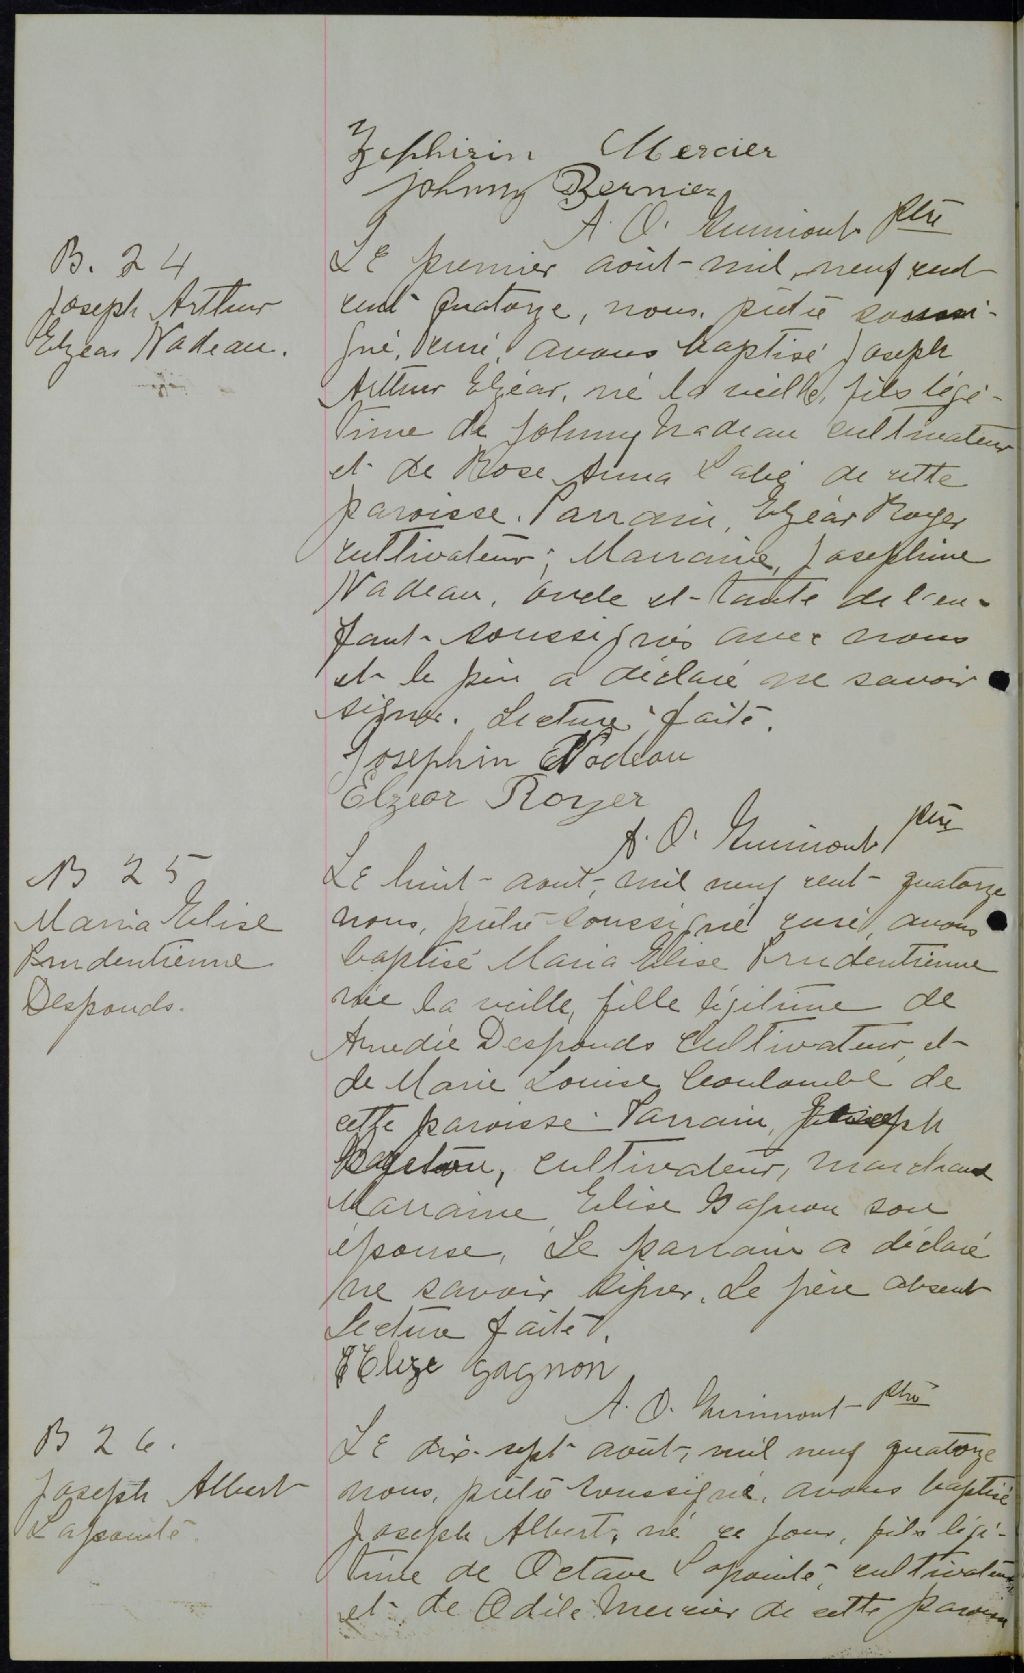 Zephirin Mercier
Johnny Bernier
A. O. Guimont ptre
B. 24
Joseph Arthur
Elzear Nadeau.
Le premier août mil neuf cent
cent quatorze, nous, prêtre soussi-
gné, curé, avons baptisé Joseph
Arthur Elzéar, né la veille, fils légi-
time de Johnny Nadeau cultivateur
et de Rose Anna de cette
paroisse. Parrain, Elzéar Royer
cultivateur; Marraine, Josephine
Nadeau, oncle et tante de l'en-
fant soussignés avec nous
et le père a déclaré ne savoir
signer. Lecture faite.
Josephin Nadeau
Elzear Royer
A. O. Guimont ptre
B 25
Maria Elise
Prudentienne
Desponds.
Le huit août, mil neuf cent quatorze
nous, prêtre soussigné curé, avons
baptisé Maria Elise Prudentienne
née la veille, fille légitime de
Amedée Desponds cultivateur, et
de Marie Louise Coulombe de
cette paroisse. Parrain, Joseph
cultivateur, marchand
Marraine, Elise Gagnon son
épouse, Le parrain a déclaré
ne savoir signer. Le père absent
Lecture faite.
Elize gagnon
A. O. Guimont ptre
B 26.
Joseph Albert
Lapointe
Le dix-sept août, mil neuf quatorze
nous, prêtre soussigné, avons baptisé
Joseph Albert, né ce jour, fils légi-
time de Octave Lapointe, cultivateur
et de Odile Mercier de cette paroisse